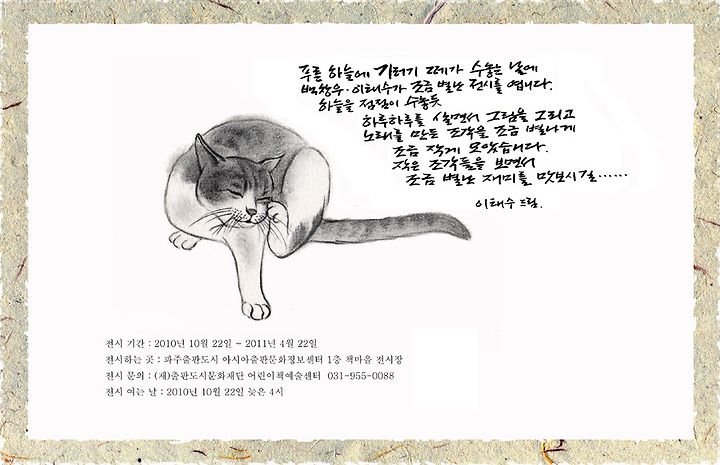 푸른 하늘에 기러기 떼가 수놓은 날에
백창우·이태수가 조금 별난 전시를 엽니다.
하늘을 점점이 수놓듯
하루하루를 살면서 그림을 그리고
노래를 만든 조각을 조금 별나게
조금 작게 모았습니다.
작은 조각들을 보면서
조금 별난 재미를 맛보시길……
이태수 드림.
전시 기간 : 2010년 10월 22일 ~ 2011년 4월 22일
전시하는 곳 : 파주출판도시 아시아출판문화정보센터 1층 책마을 전시장
전시 문의 : (재)출판도시문화재단 어린이책예술센터 031-955-0088
전시 여는 날 : 2010년 10월 22일 늦은 4시